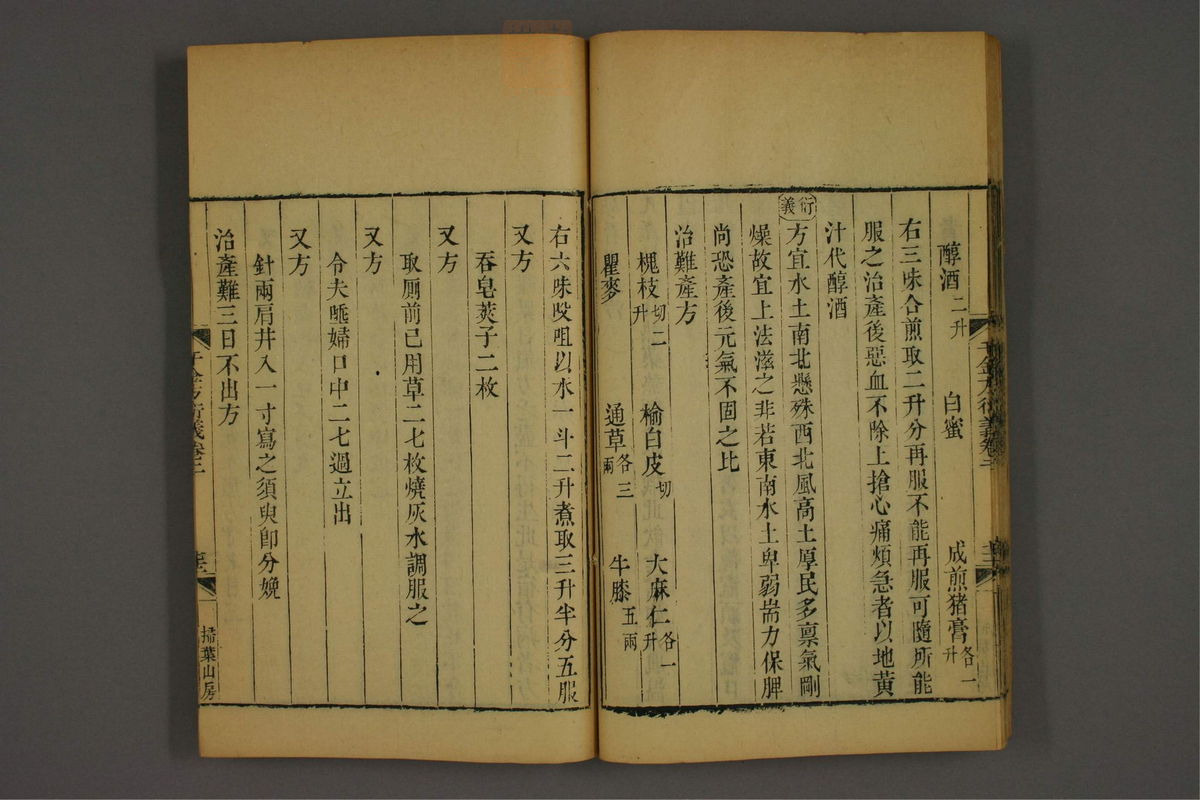 醇酒二升 白蜜 成煎猪膏各一升
右三味合煎取二升分再服不能再服可隨所能
服之治產後惡血不除上搶心痛煩急者以地黃
汁代醇酒
衍義
方宜水土南北懸殊西北風高土厚民多禀氣剛
燥故宜上法滋之非若東南水土卑弱耑力保脾
尚恐產後元氣不固之比
治難產方
槐枝切二升 榆白皮切 大麻仁各一升
瞿麥 通草各三兩 牛膝五兩
千金方衍義卷二
右六味㕮咀以水一斗二升煮取三升半分五服
又方
吞皂莢子二枚
又方
取厠前已用草二七枚燒灰水調服之
又方
令夫唾婦口中二七過立出
又方
針兩肩井入一寸寫之須臾卽分娩
治產難三日不出方
千金方衍義卷二
掃葉山房